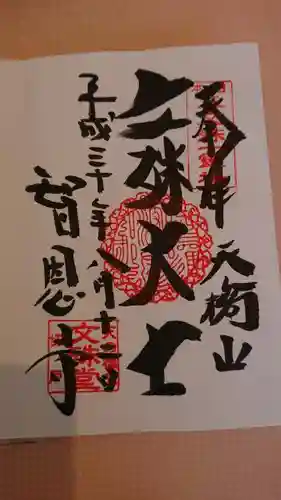 奉拝 天橋山
文殊大士
平成三十年八月十二日
智恩寺
文殊堂